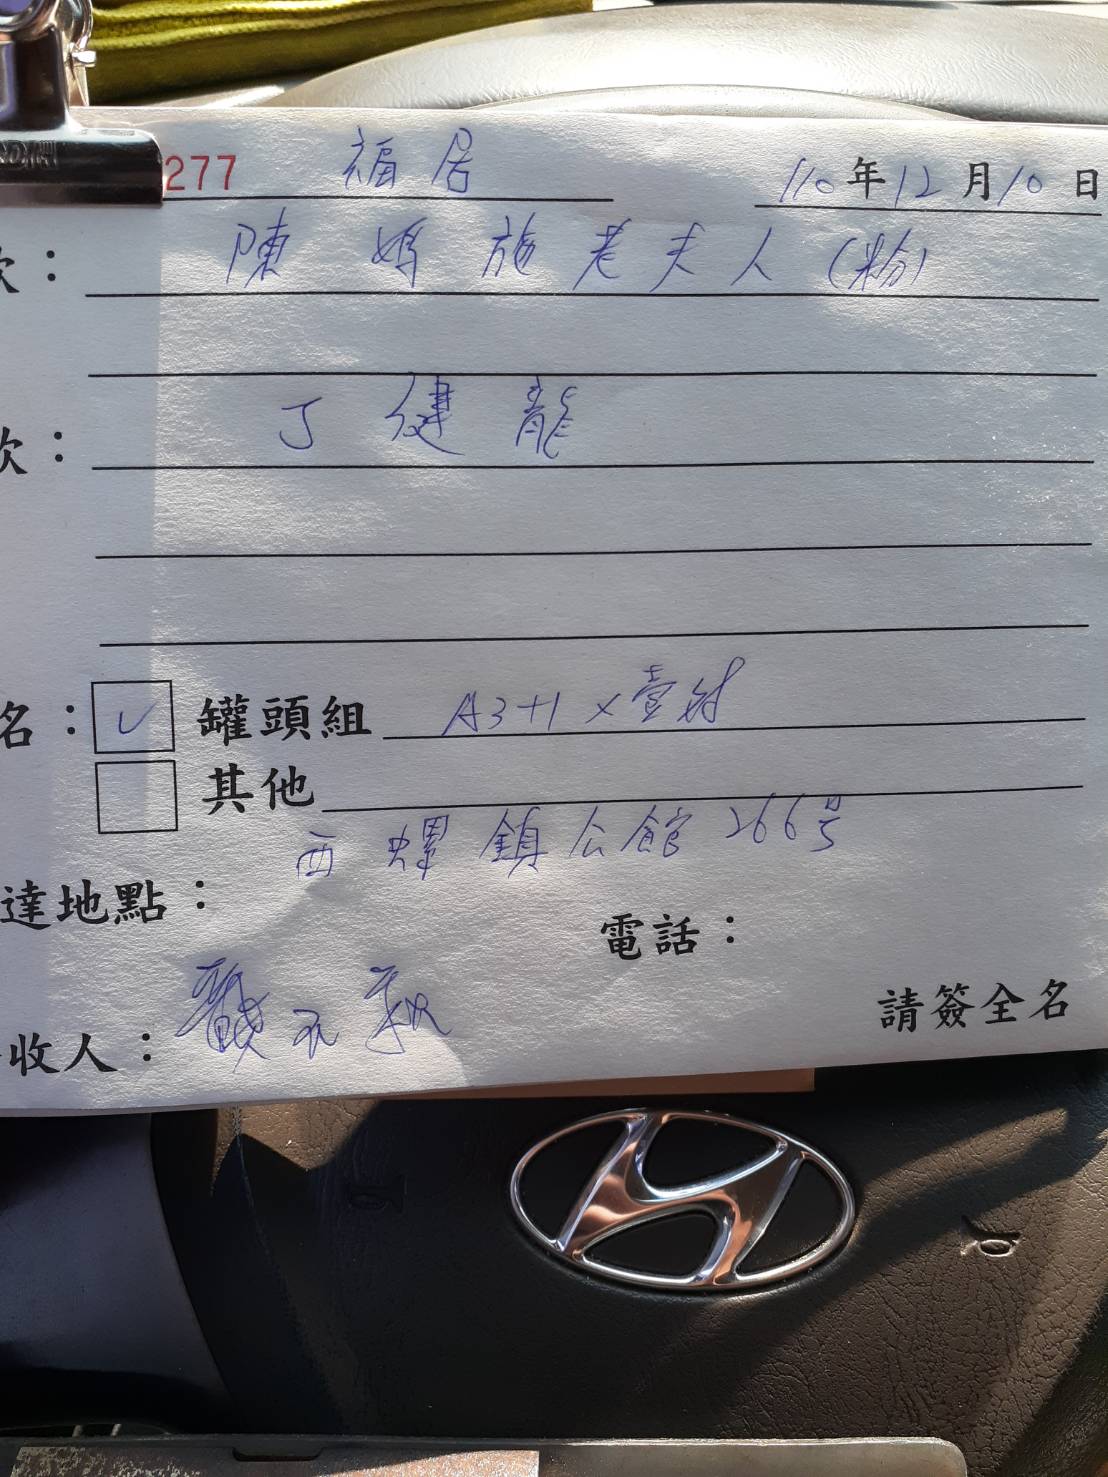 277 福居 110年12月10日
欠： 陳媽施老夫人(粉)
欠： 丁健龍
名： ✓ 罐頭組 A3+1×壹對
其他
西螺鎮公館266号
達地點：
電話：
收人：
請簽全名